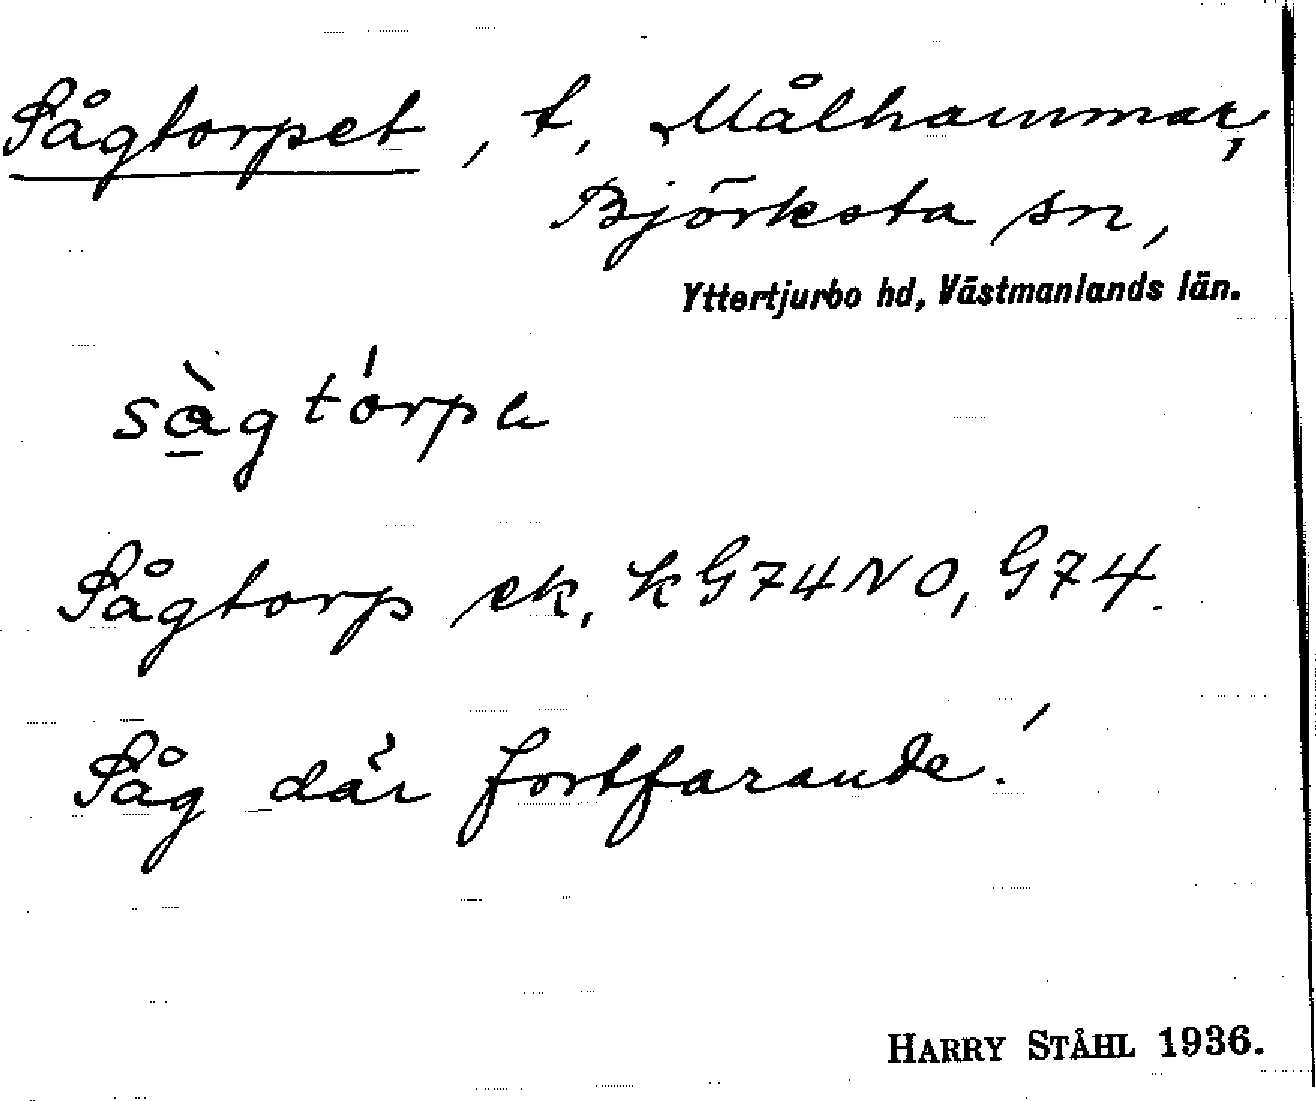 Sågtorpet, t, Målhammar,
Björksta sn,
Yttertjurbo hd, Västmanlands län.
sà̱gtórpə
Sågtorp ek, kG74NO, G74.
Såg där fortfarande!
HARRY STÅHL 1936.